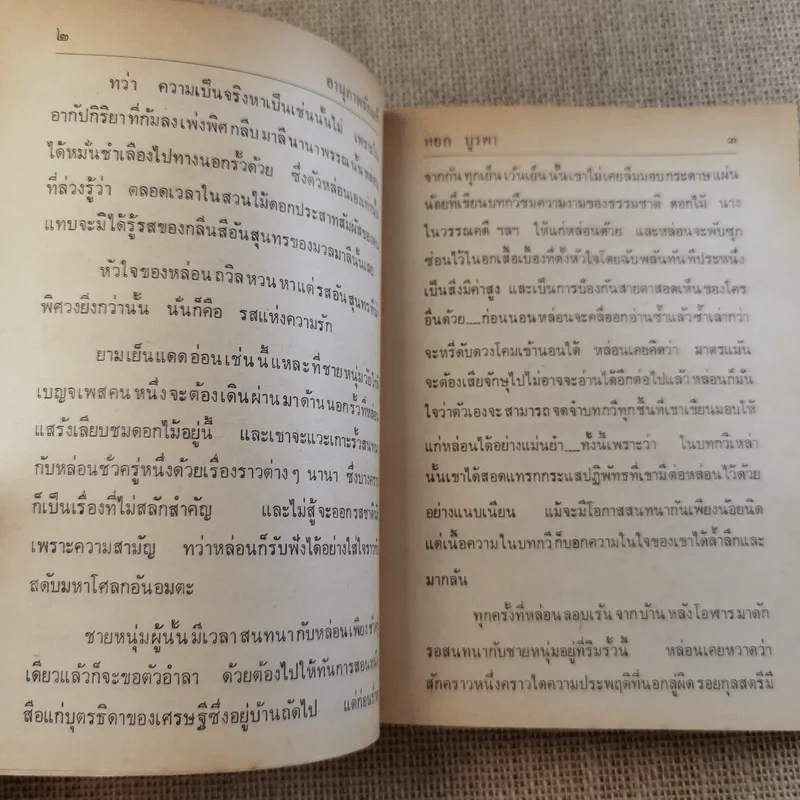 ๒
อานุภาพรัก
ทว่า ความเป็นจริงหาเป็นเช่นนั้นไม่ เพราะ
อากัปกิริยาที่ก้มลงเพ่งพิศกลีบมาลีนานาพรรณนั้น
ได้หมั่นชำเลืองไปทางนอกรั้วด้วย ซึ่งตัวหล่อนเองเท่านั้น
ที่ล่วงรู้ว่า ตลอดเวลาในสวนไม้ดอกประสาทสัมผัสของ
แทบจะมิได้รู้รสของกลิ่นสีอันสุนทรของมวลมาลีนั้นเลย
หัวใจของหล่อนถวิลหวนหาแต่รสอันสุนทร
พิศวงยิ่งกว่านั้น นั่นก็คือ รสแห่งความรัก
ยามเย็นแดดอ่อนเช่นนี้แหละที่ชายหนุ่มวัย
เบญจเพสคนหนึ่งจะต้องเดินผ่านมาด้านนอกรั้วที่
แสร้งเลียบชมดอกไม้อยู่นี้ และเขาจะแวะเกาะรั้วสนทนา
กับหล่อนชั่วครู่หนึ่งด้วยเรื่องราวต่างๆ นานา ซึ่งบางครา
ก็เป็นเรื่องที่ไม่สลักสำคัญ และไม่สู้จะออกรสชาติ
เพราะความสามัญ ทว่าหล่อนก็รับฟังได้อย่างใส่ใจราว
สดับมหาโศลกอันอมตะ
ชายหนุ่มผู้นั้นมีเวลาสนทนากับหล่อนเพียงชั่ว
เดียวแล้วก็จะขอตัวอำลา ด้วยต้องไปให้ทันการสอนหนัง
สือแก่บุตรธิดาของเศรษฐีซึ่งอยู่บ้านถัดไป แต่ก่อน
หยก บูรพา ๓
จากกันทุกเย็นเว้นเย็นนั้นเขาไม่เคยลืมมอบกระดาษแผ่น
น้อยที่เขียนบทกวีชมความงามของธรรมชาติ ดอกไม้ นาง
ในวรรณคดี ฯลฯ ให้แก่หล่อนด้วย และหล่อนจะพับซุก
ซ่อนไว้ในอกเสื้อเบื้องที่ตั้งหัวใจโดยฉับพลันทันทีประหนึ่ง
เป็นสิ่งมีค่าสูง และเป็นการป้องกันสายตาสอดเห็นของใคร
อื่นด้วย....ก่อนนอนหล่อนจะคลี่ออกอ่านซ้ำแล้วซ้ำเล่ากว่า
จะหรี่ดับดวงโคมเข้านอนได้ หล่อนเคยคิดว่า มาตรแม้น
จะต้องเสียจักษุไปไม่อาจจะอ่านได้อีกต่อไปแล้วหล่อนก็มั่น
ใจว่าตัวเองจะสามารถจดจำบทกวีทุกชิ้นที่เขาเขียนมอบให้
แก่หล่อนได้อย่างแม่นยำ....ทั้งนี้เพราะว่า ในบทกวีเหล่า
นั้นเขาได้สอดแทรกกระแสปฏิพัทธที่เขามีต่อหล่อนไว้ด้วย
อย่างแนบเนียน แม้จะมีโอกาสสนทนากันเพียงน้อยนิด
แต่เนื้อความในบทกวีก็บอกความในใจของเขาได้ล้ำลึกและ
มากล้น
ทุกครั้งที่หล่อนลอบเร้นจากบ้านหลังโอฬารมาดัก
รอสนทนากับชายหนุ่มอยู่ที่ริมรั้วนี้ หล่อนเคยหวาดว่า
สักคราวหนึ่งคราวใดความประพฤติที่นอกลู่ผิดรอยกุลสตรีมี